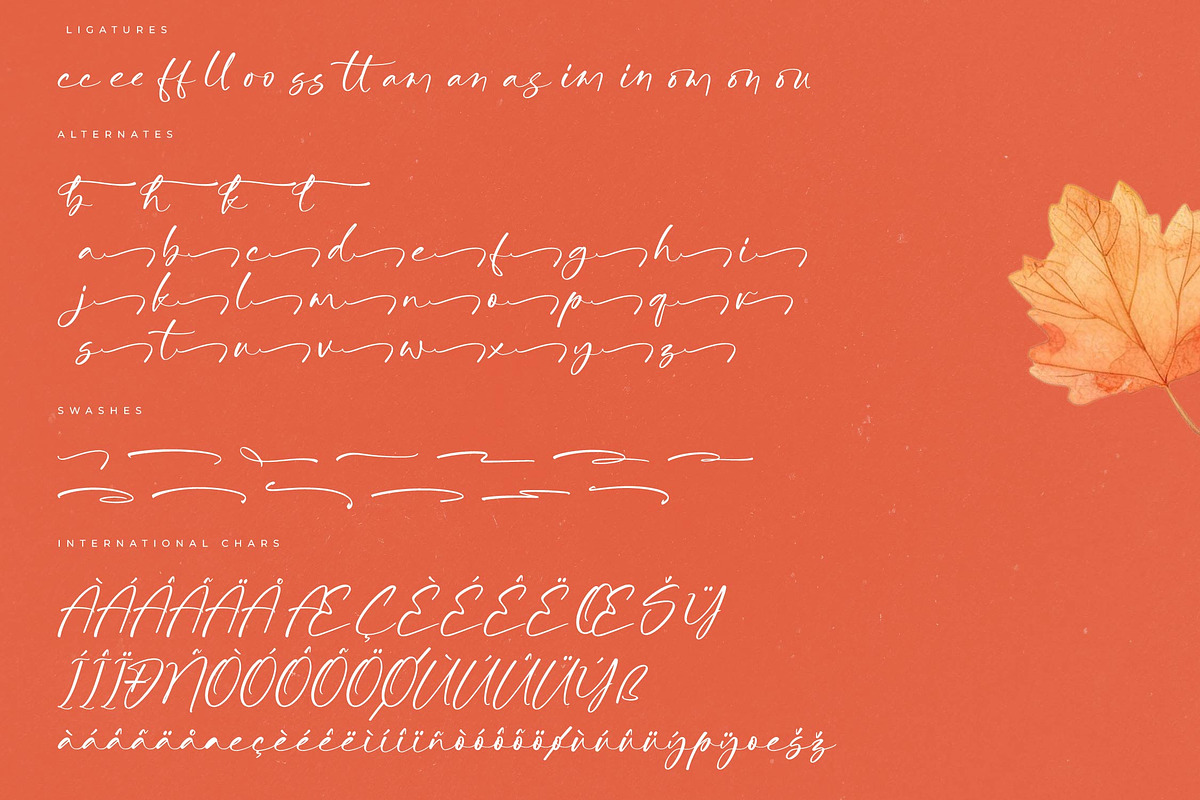 LIGATURES
cc ee ff ll oo ss tt am an as im in om on ou
ALTERNATES
b h k t
a b c d e f g h i
j k l m n o p q r
s t u v w x y z
SWASHES
INTERNATIONAL CHARS
ÀÁÂÃÄÅ Æ Ç È É Ê Ë Œ Š Ÿ
ÍÎÏÐÑÒÓÔÕÖØÙÚÛÜÝß
àáâãäåæçèéêëìíîïñòóôõöøùúûüýþÿœšž